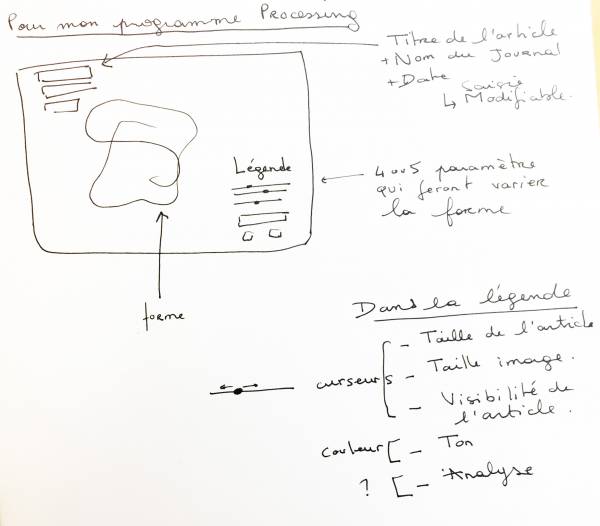 Pour mon programme Processing
Titre de l'article
+ Nom du Journal
+ Date
Saisie
↳ Modifiable.
Légende
4 ou 5 paramètre
qui feront varier
la forme
forme
Dans la légende
curseurs
- Taille de l'article
- Taille image.
- Visibilité de
l'article.
couleur [ - Ton
? [ - Analyse